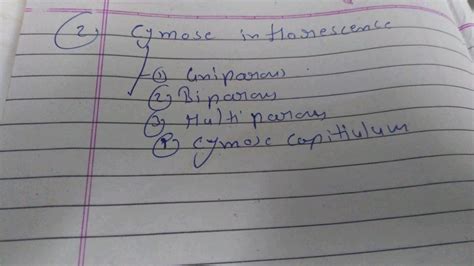 ② Cymose inflorescence
① Uniparous
② Biparous
③ Multiparous
④ Cymose capitulum